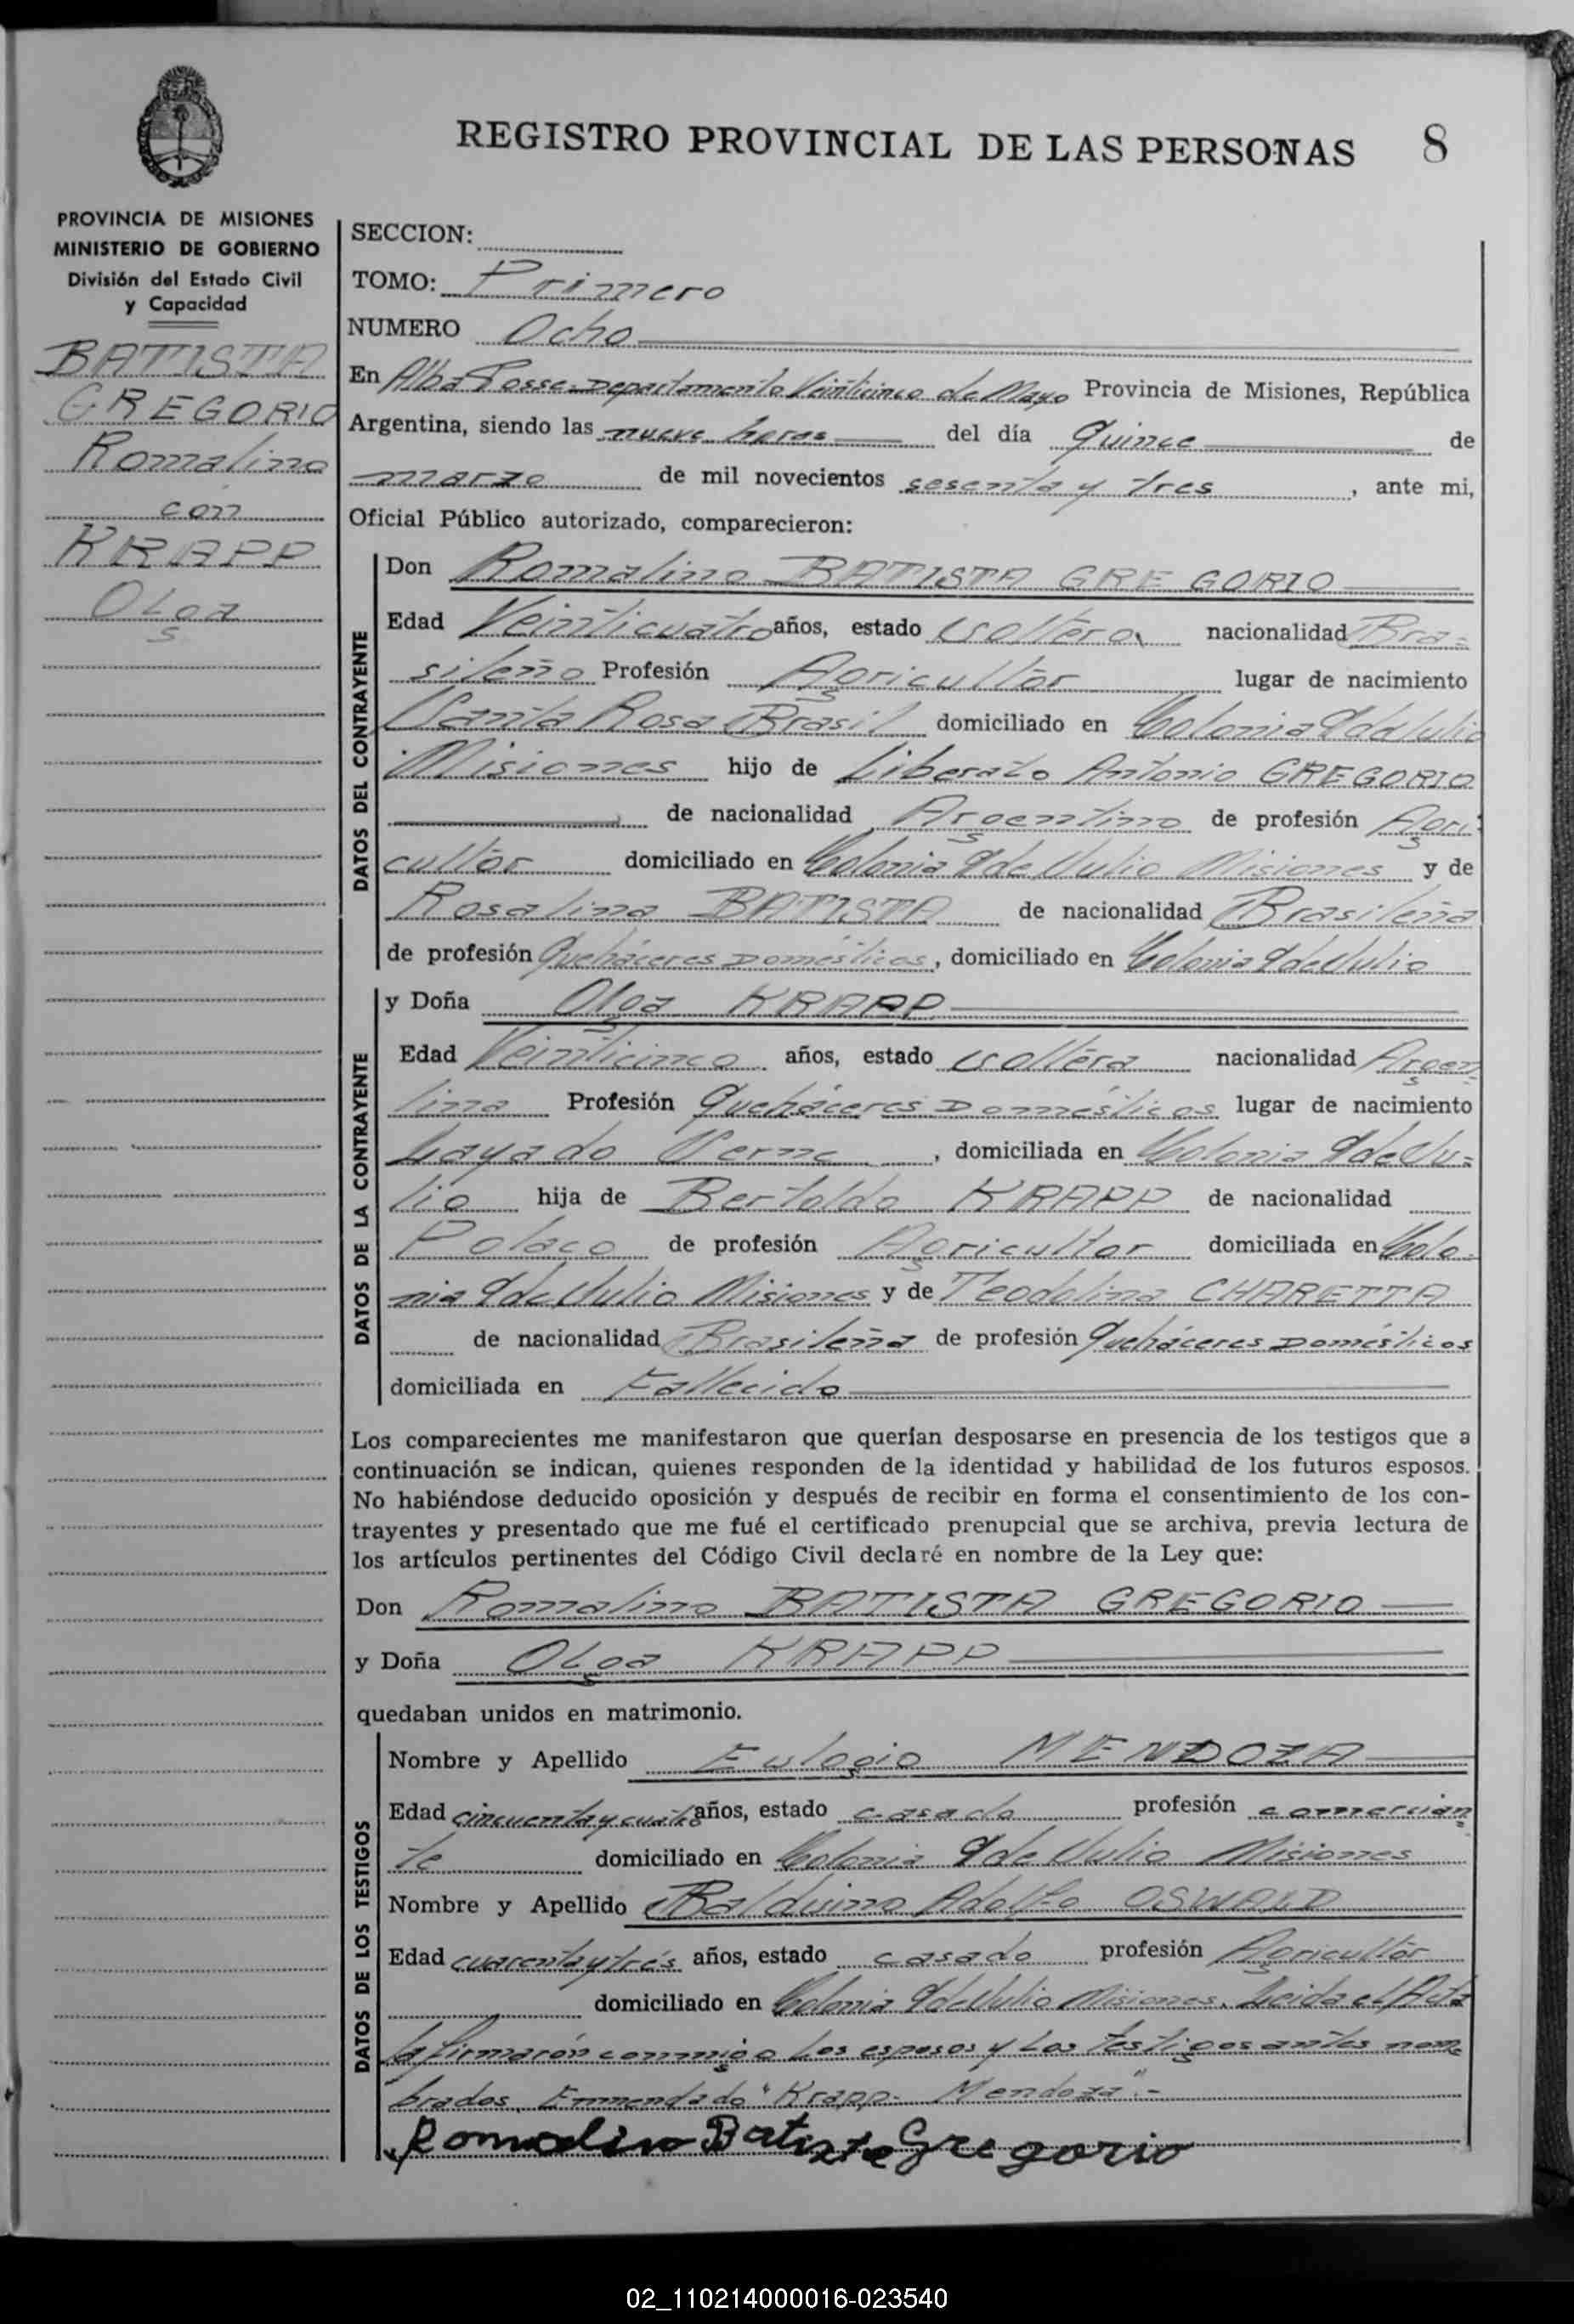 REGISTRO PROVINCIAL DE LAS PERSONAS 8
PROVINCIA DE MISIONES
MINISTERIO DE GOBIERNO
División del Estado Civil
y Capacidad
BATISTA
GREGORIO
Romalino
con
KRAPP
Olga
SECCION:
TOMO: Primero
NUMERO Ocho
En Alba Posse Departamento Veinticinco de Mayo Provincia de Misiones, República
Argentina, siendo las nueve horas del día Quince de
marzo de mil novecientos sesenta y tres, ante mi,
Oficial Público autorizado, comparecieron:
DATOS DEL CONTRAYENTE
Don Romalino BATISTA GREGORIO
Edad Veinticuatro años, estado soltero nacionalidad Bra=
sileño Profesión Agricultor lugar de nacimiento
Santa Rosa Brasil domiciliado en Colonia 9 de Julio
Misiones hijo de Liberato Antonio GREGORIO
de nacionalidad Argentino de profesión Agri
cultor domiciliado en Colonia 9 de Julio Misiones y de
Rosalina BATISTA de nacionalidad Brasileña
de profesión Queháceres Domésticos, domiciliado en Colonia 9 de Julio
DATOS DE LA CONTRAYENTE
y Doña Olga KRAPP
Edad Veinticinco años, estado soltera nacionalidad Argen
tina Profesión Queháceres Domésticos lugar de nacimiento
, domiciliada en Colonia 9 de Ju=
lio hija de Bertoldo KRAPP de nacionalidad
Polaco de profesión Agricultor domiciliada en Colo-
nia 9 de Julio Misiones y de Teodolina CHARETTA
de nacionalidad Brasileña de profesión Queháceres Domésticos
domiciliada en Fallecido
Los comparecientes me manifestaron que querían desposarse en presencia de los testigos que a
continuación se indican, quienes responden de la identidad y habilidad de los futuros esposos.
No habiéndose deducido oposición y después de recibir en forma el consentimiento de los con-
trayentes y presentado que me fué el certificado prenupcial que se archiva, previa lectura de
los artículos pertinentes del Código Civil declaré en nombre de la Ley que:
Don Romalino BATISTA GREGORIO
y Doña Olga KRAPP
quedaban unidos en matrimonio.
DATOS DE LOS TESTIGOS
Nombre y Apellido Eulogio MENDOZA
Edad cincuenta y cuatro años, estado casado profesión comercian
te domiciliado en Colonia 9 de Julio Misiones
Nombre y Apellido Balduino Adolfo OSWALD
Edad cuarenta y trés años, estado casado profesión Agricultor
domiciliado en Colonia 9 de Julio Misiones. Leida el Acta
la firmarón conmigo Los esposos y Los Testigos antes nom
brados. Emmendado "Krapp- Mendoza".-
Romalino Batista Gregorio
02_110214000016-023540